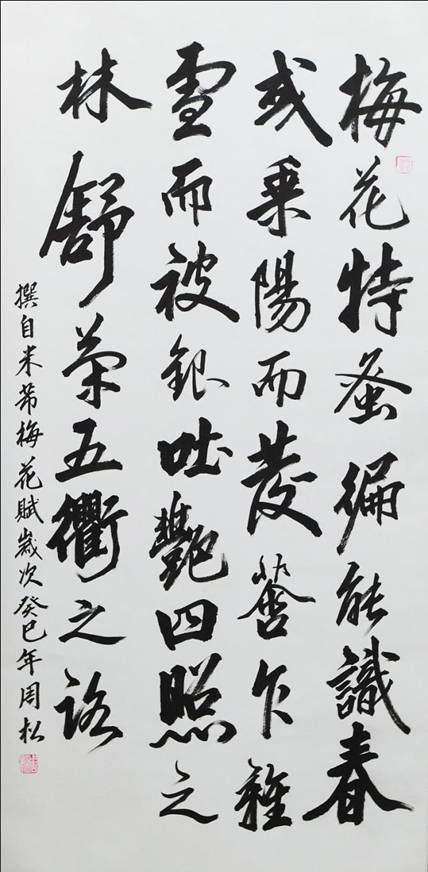 梅花特蚤徧能識春
或乗陽而發乍雜
雪而被銀吐艷四照之
林舒榮五衢之路
撰自米芾梅花賦歲次癸巳年周松